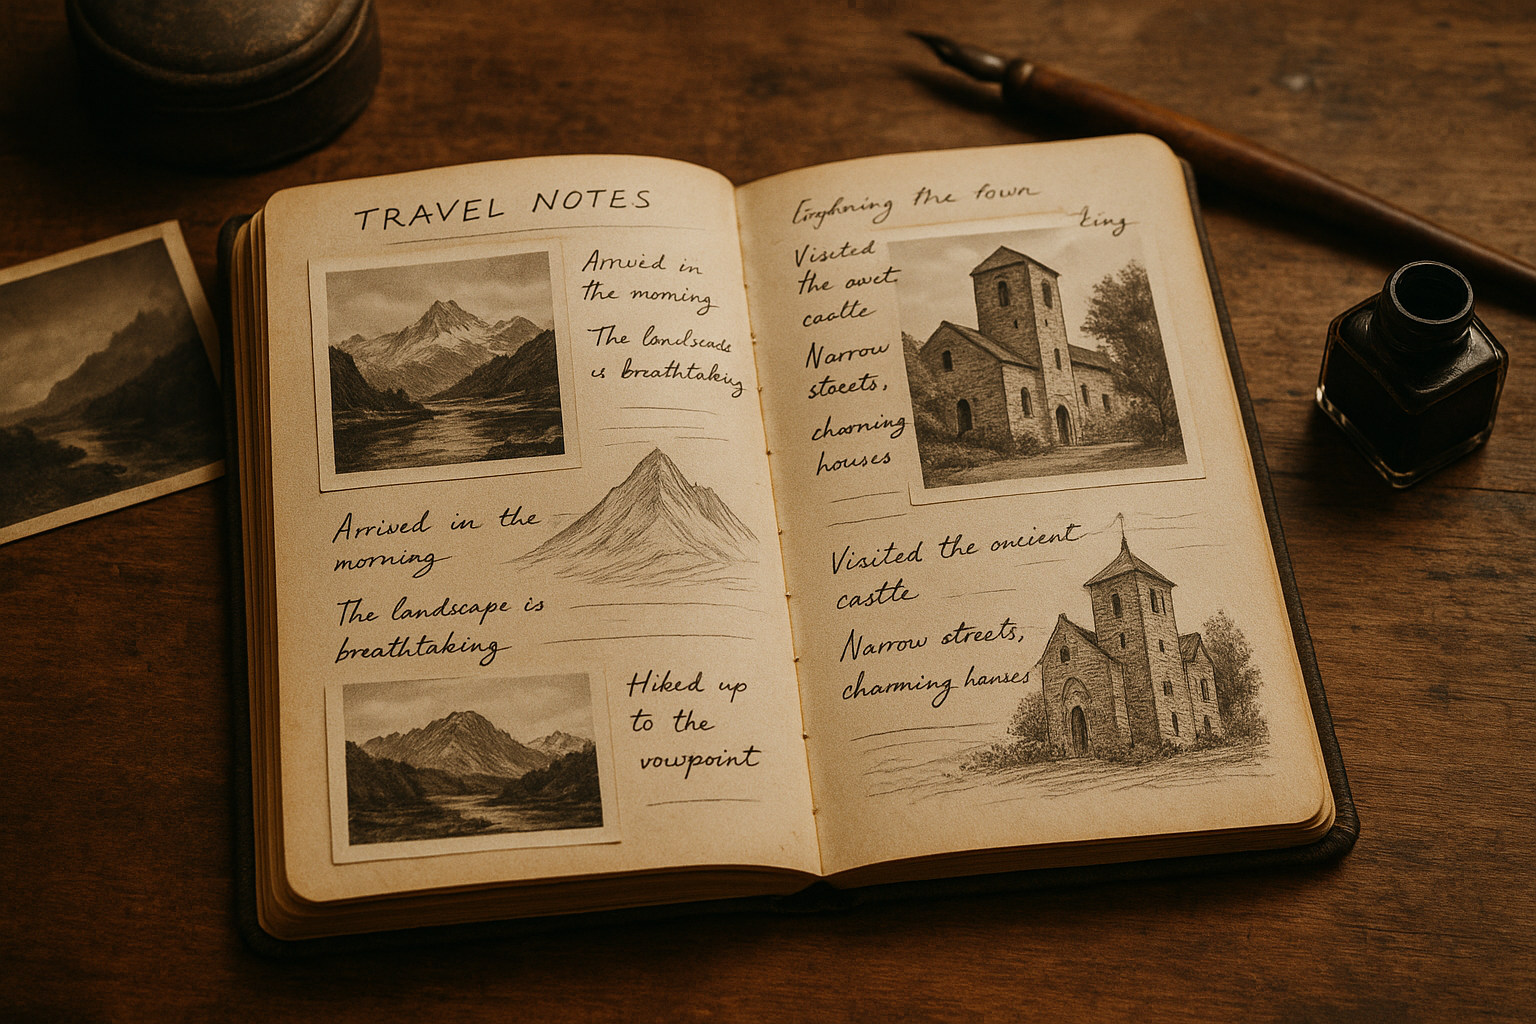 TRAVEL NOTES
Arrived in
the morning
The landscads
is breathtaking
Arrived in the
morning
The landscape is
breathtaking
Hiked up
to the
vowpoint
the town
king
Visited
the awct
caatte
Narrow
stoeets,
charning
houses
Visited the oncient
castte
Narrow streets,
charming hanses